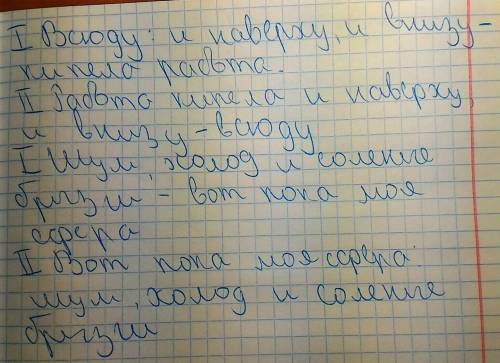 I Всюду: и наверху, и внизу–
кипела работа.
II Работа кипела и наверху,
и внизу – всюду
I Шум, холод и соление
брызги – вот пока моя
сфера
II Вот пока моя сфера:
шум, холод и соление
брызги